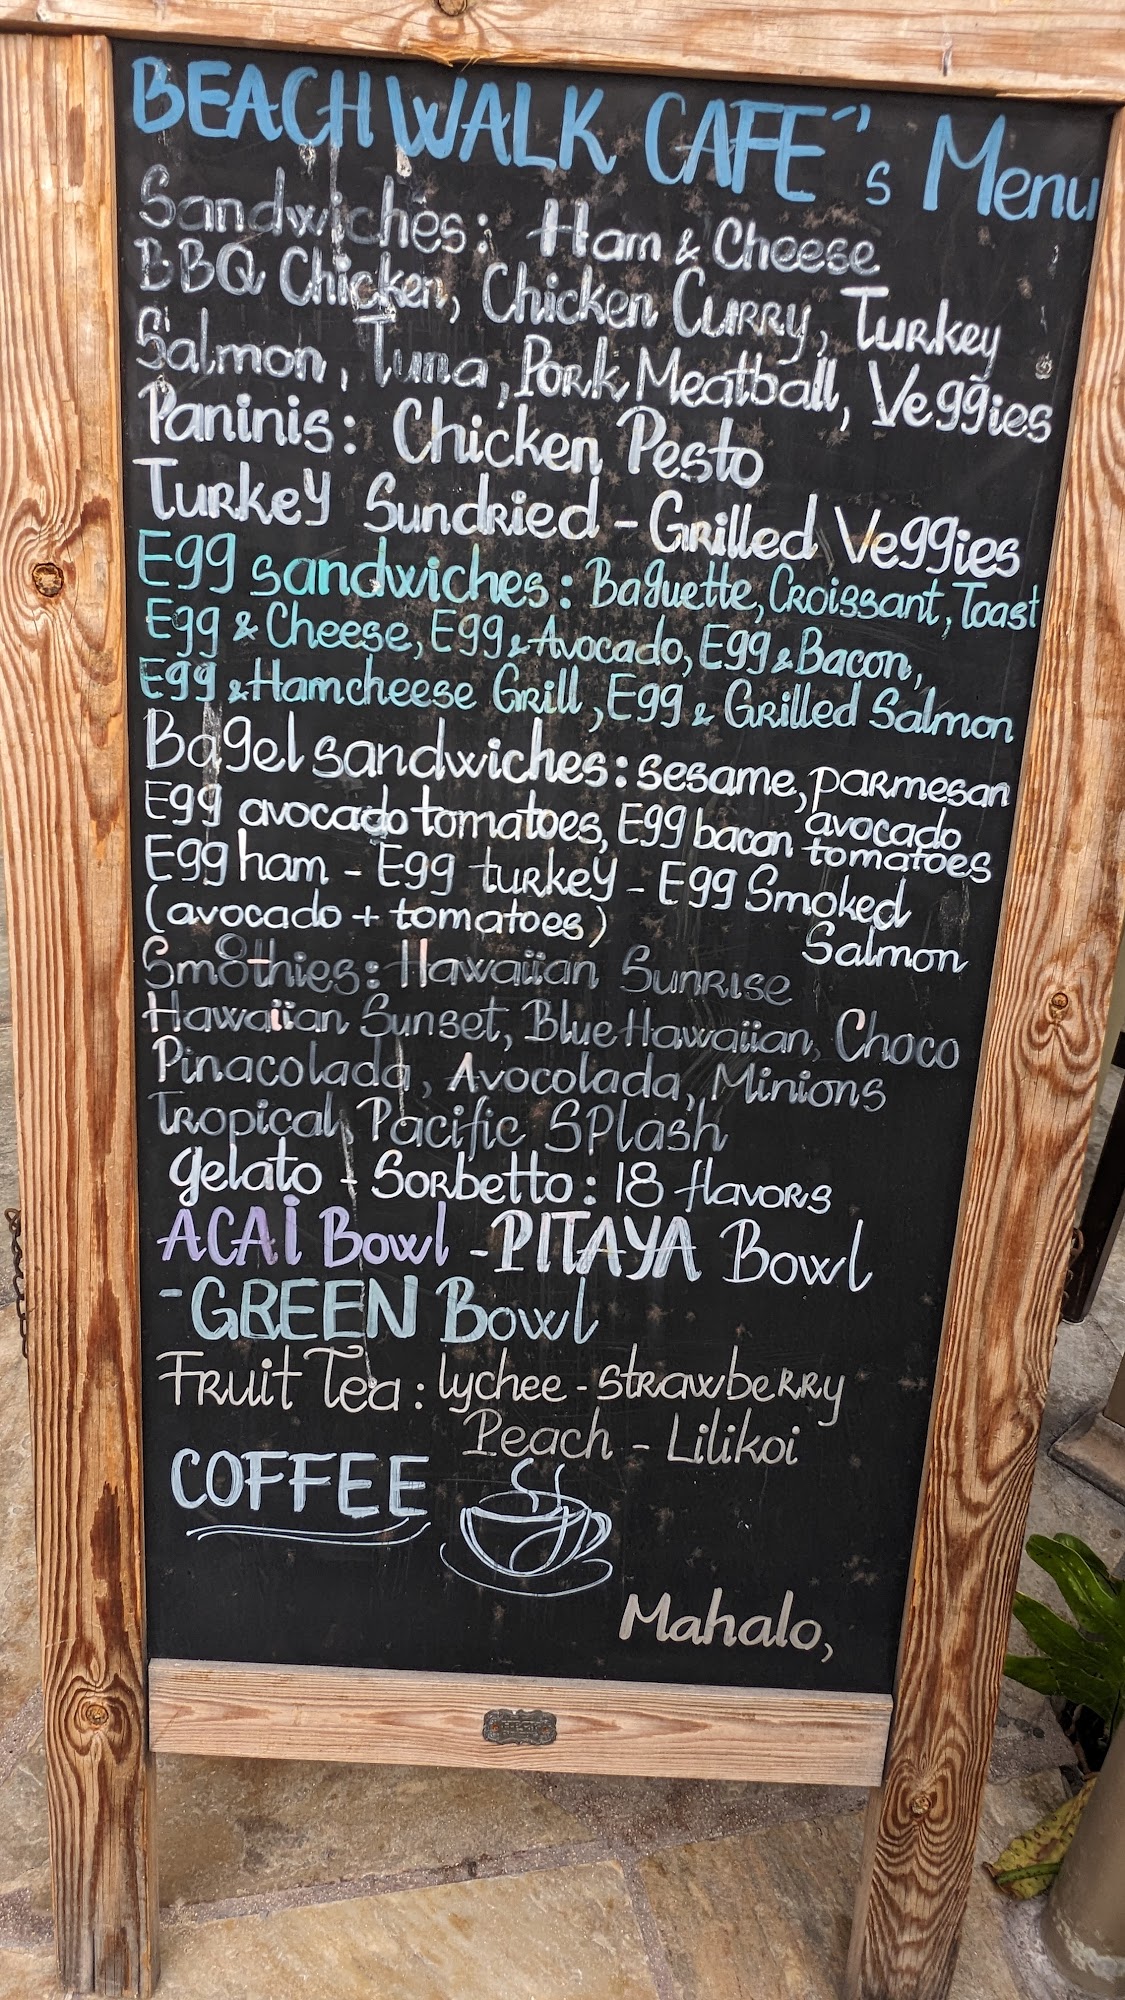 BEACHWALK CAFE''s Menu
Sandwiches: Ham & Cheese
BBQ Chicken, Chicken Curry, Turkey
Salmon, Tuna, Pork Meatball, Veggies
Paninis: Chicken Pesto
Turkey Sundried - Grilled Veggies
Egg sandwiches: Baguette, Croissant, Toast
Egg & Cheese, Egg & Avocado, Egg & Bacon,
Egg & Hamcheese Grill, Egg & Grilled Salmon
Bagel sandwiches: sesame, parmesan
Egg avocado tomatoes, Egg bacon avocado tomatoes
Egg ham - Egg turkey - Egg Smoked Salmon
(avocado + tomatoes)
Smoothies: Hawaiian Sunrise
Hawaiian Sunset, Blue Hawaiian, Choco
Pinacolada, Avocolada, Minions
Tropical, Pacific Splash
gelato - Sorbetto: 18 flavors
ACAI Bowl - PITAYA Bowl
- GREEN Bowl
Fruit Tea: lychee - strawberry
Peach - Lilikoi
COFFEE
Mahalo,